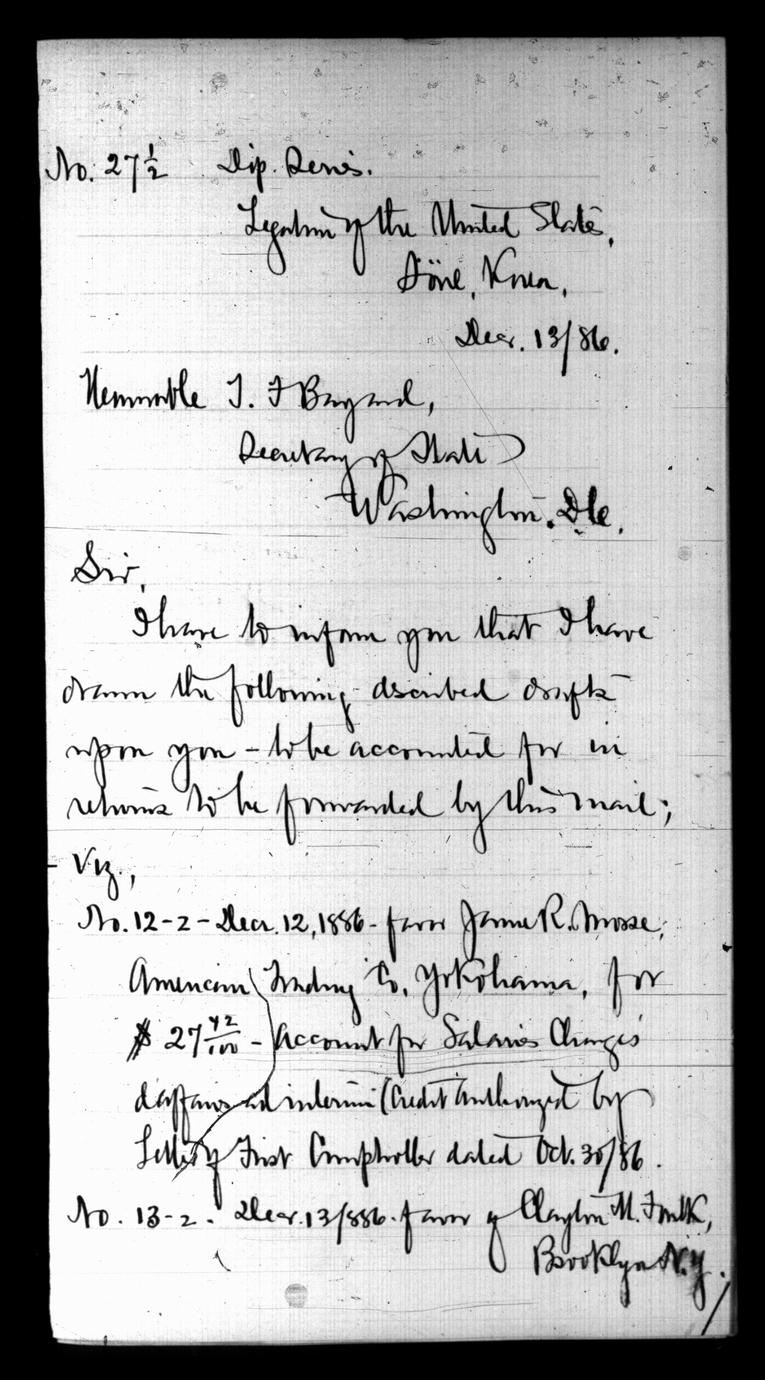 No. 27½ Dip. Series.
Legation of the United States,
Söul, Korea,
Decr. 13/86.
Honorable T. F Bayard,
Secretary of State
Washington. D.C.
Sir,
I have to inform you that I have
drawn the following dscribed drafts
upon you - to be accounted for in
returns to be forwarded by this mail;
Viz.,
No. 12-2 - Decr. 12, 1886 - favor James R. Morse,
American Trading Co, Yokohama, for
$ 27 42/100 - Account for Salaries Chargés
d'affaires ad interim (Credit authorized by
Letter of First Comptroller dated Oct. 30/86.
No. 13-2. Decr. 13/886. favor of Clayton M. Foulk,
Brooklyn N.Y.